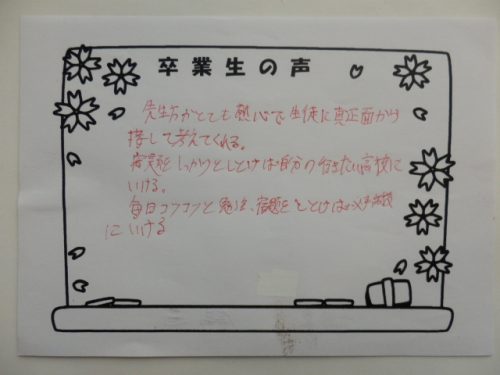 卒業生の声
先生方がとても熱心で生徒に真正面から
接して考えてくれる。
授業をしっかりとしとけば自分の行きたい高校に
いける。
毎日コツコツと勉強、宿題をしとけば必ず
にいける